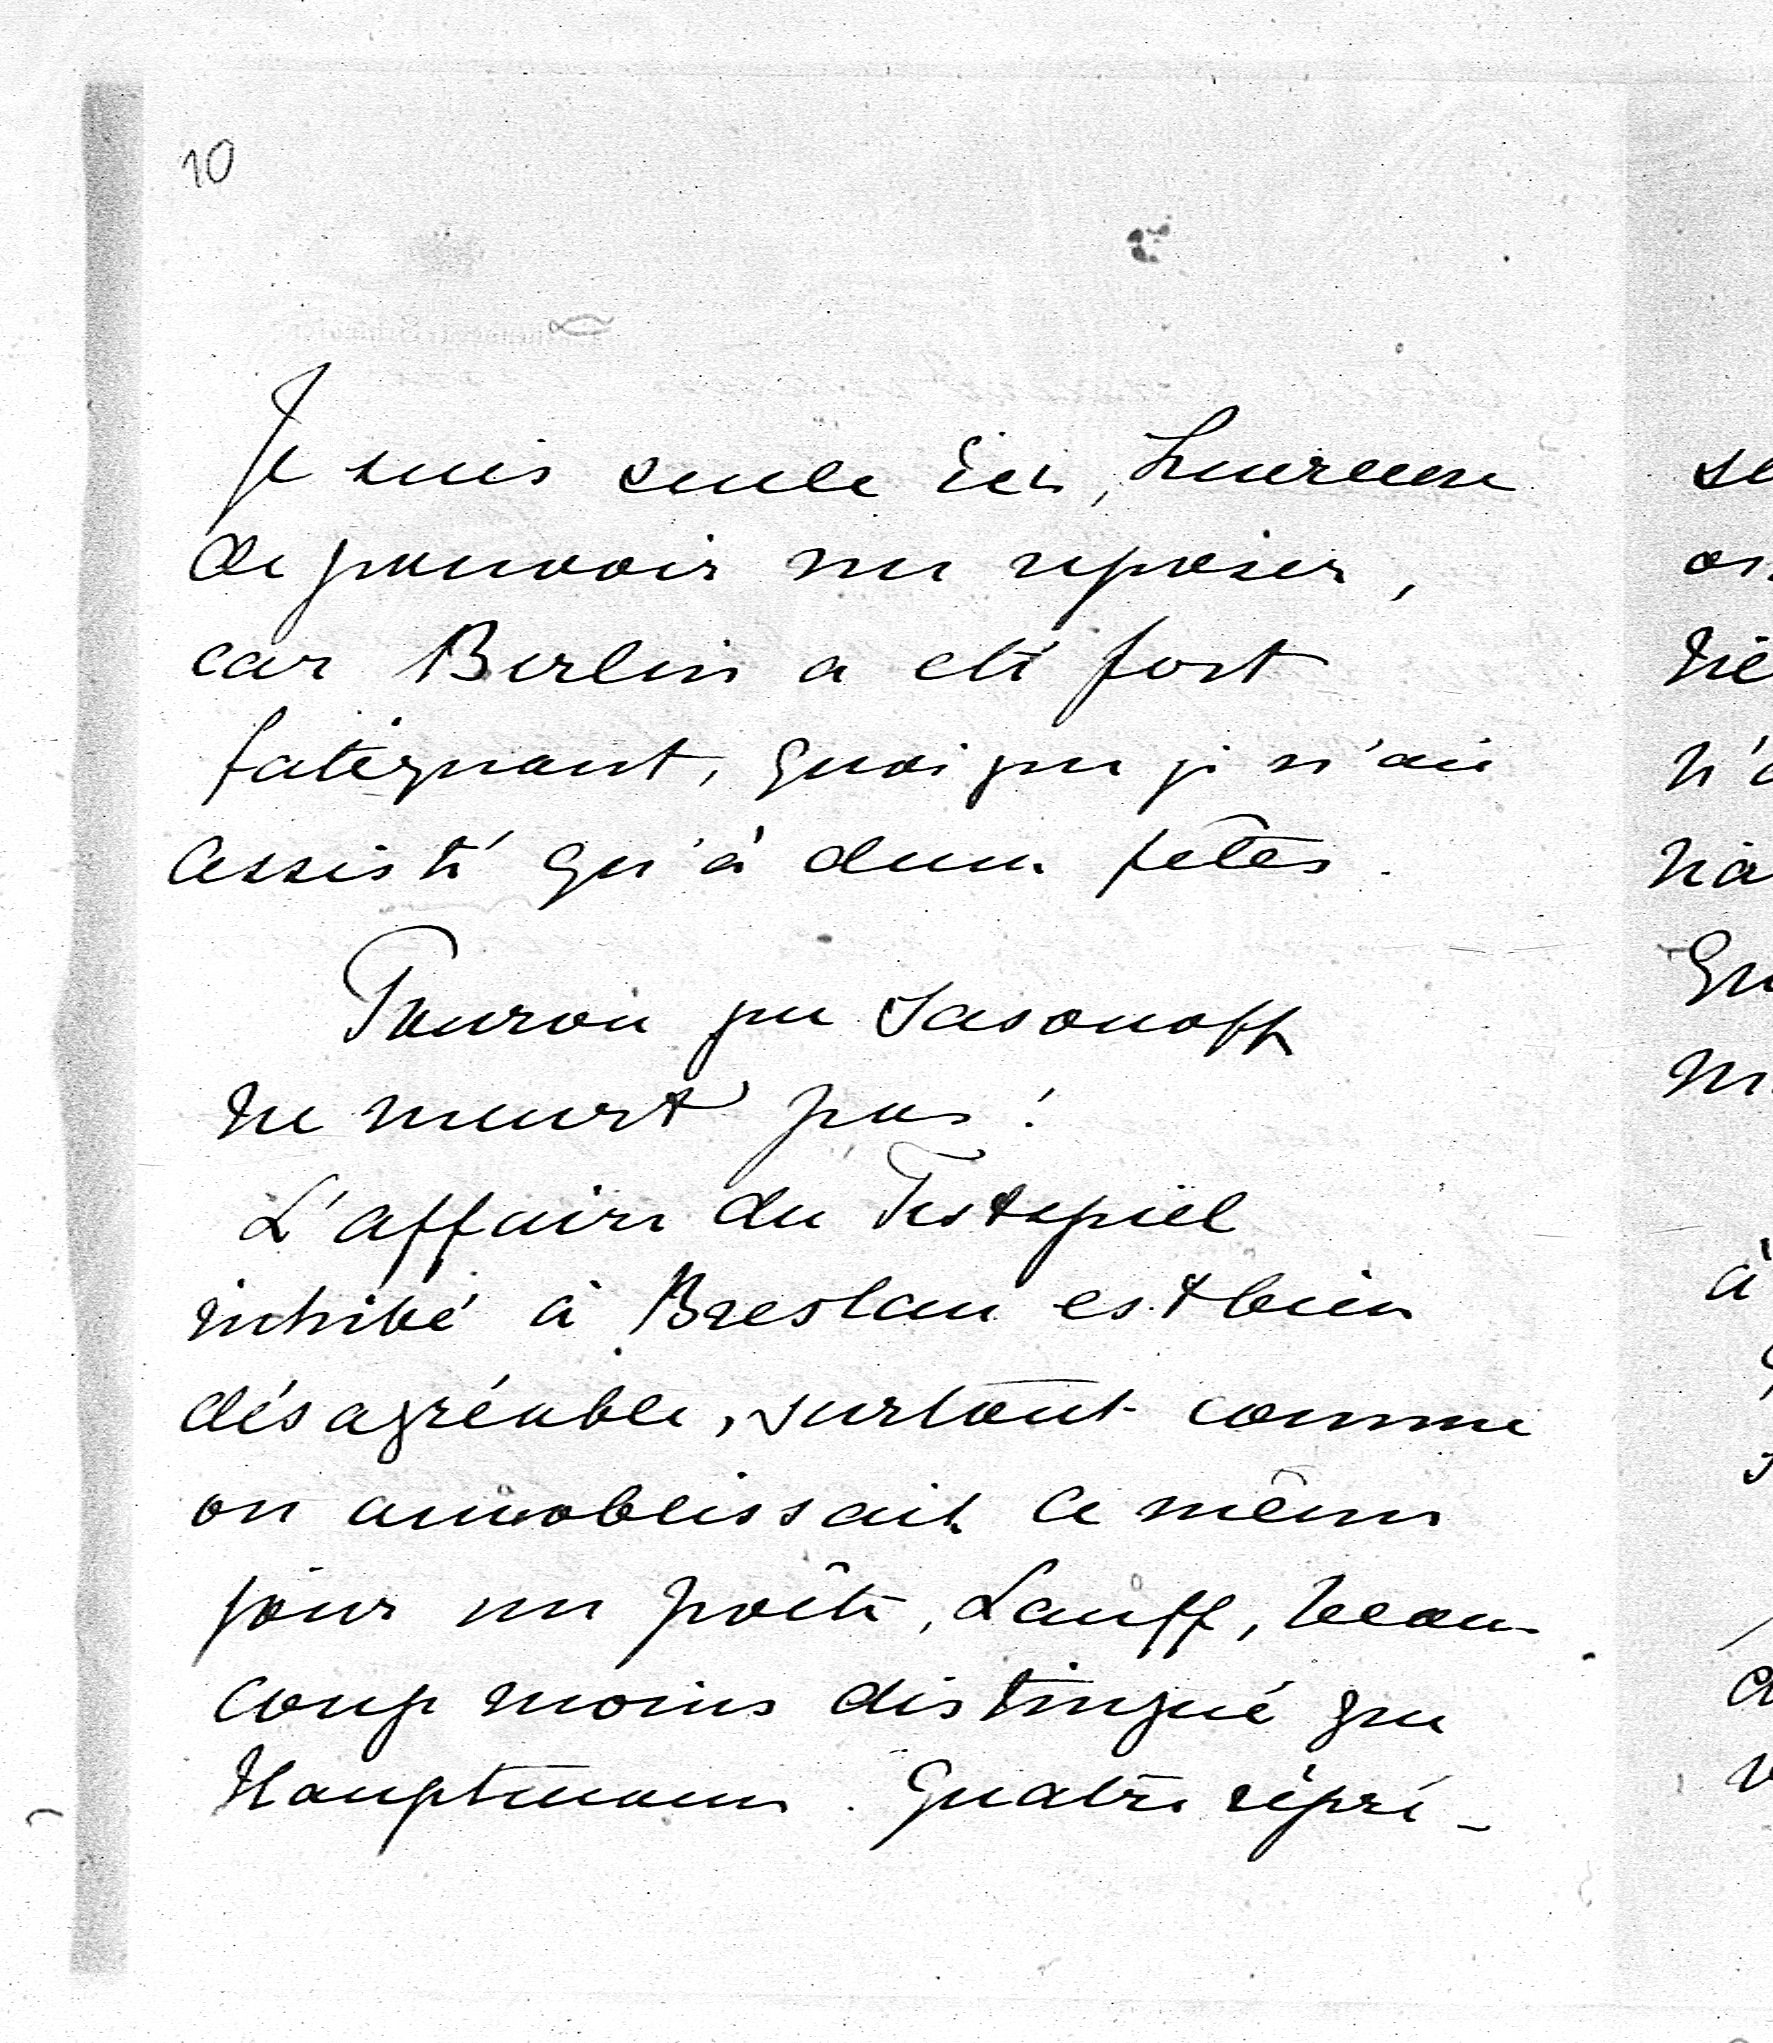 10
Je suis seule ici, heureuse
de pouvoir me reposer,
car Berlin a été fort
fatiguant, quoique je n'aie
assisté qu'à deux fêtes.
Pourvu que Sasonoff
ne meurt pas!
L'affaire du Festspiel
inhibé à Breslau est bien
désagréable, surtout comme
on annoblissait le même
jour un poête, Lauff, beau-
coup moins distingué que
Hauptmann. Quatre répré-